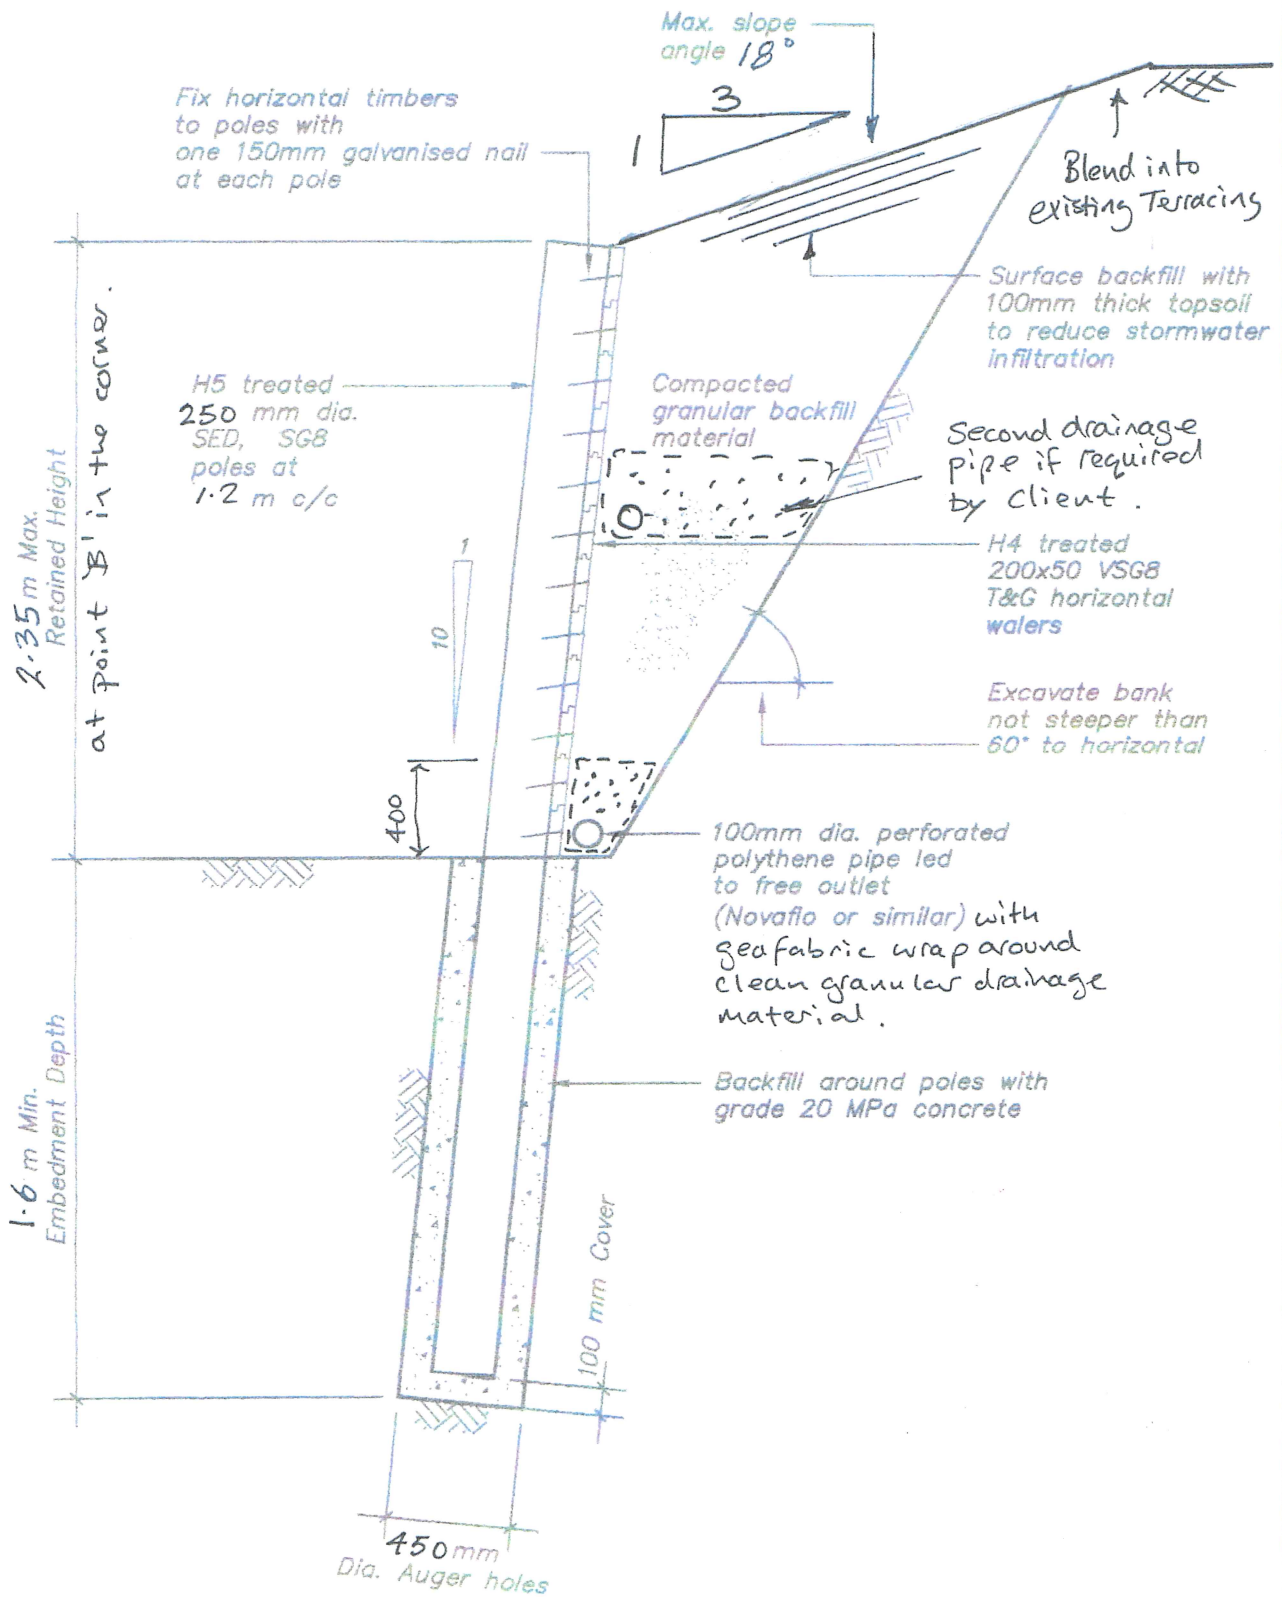 Max. slope
angle 18°
3
1
Fix horizontal timbers
to poles with
one 150mm galvanised nail
at each pole
Blend into
existing Terracing
Surface backfill with
100mm thick topsoil
to reduce stormwater
infiltration
2.35 m Max.
Retained Height
at point 'B' in the corner.
H5 treated
250 mm dia.
SED, SG8
poles at
1.2 m c/c
Compacted
granular backfill
material
Second drainage
pipe if required
by client.
H4 treated
200x50 VSG8
T&G horizontal
walers
1
10
Excavate bank
not steeper than
60° to horizontal
400
100mm dia. perforated
polythene pipe led
to free outlet
(Novaflo or similar) with
geofabric wrap around
clean granular drainage
material.
1.6 m Min.
Embedment Depth
Backfill around poles with
grade 20 MPa concrete
100 mm Cover
450 mm
Dia. Auger holes